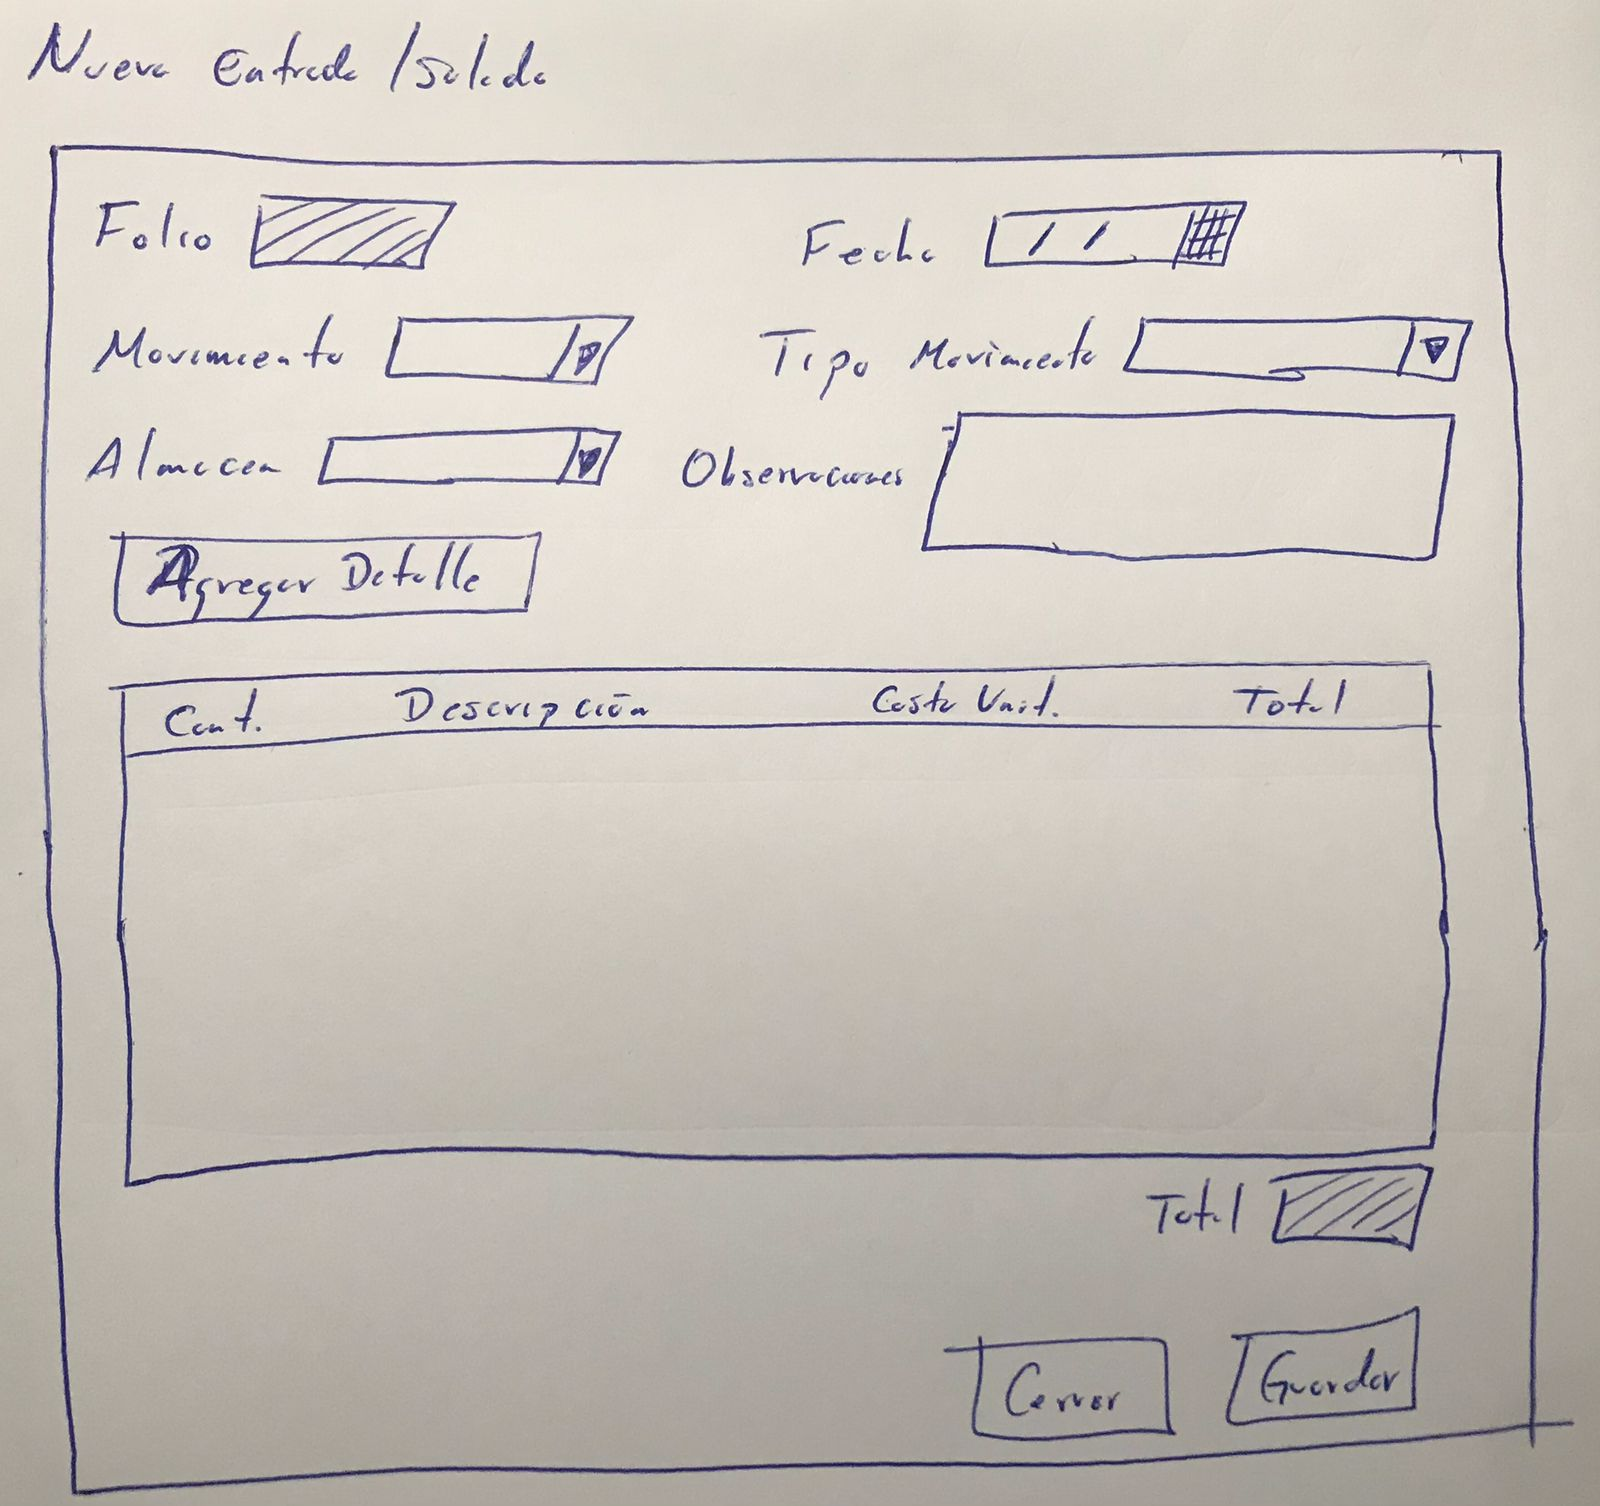 Nueva Entrada / Salida
Folio
Fecha / /
Movimiento
Tipo Movimiento
Almacen
Observaciones
Agregar Detalle
Cant. Descripción Costo Unit. Total
Total
Cerrar Guardar